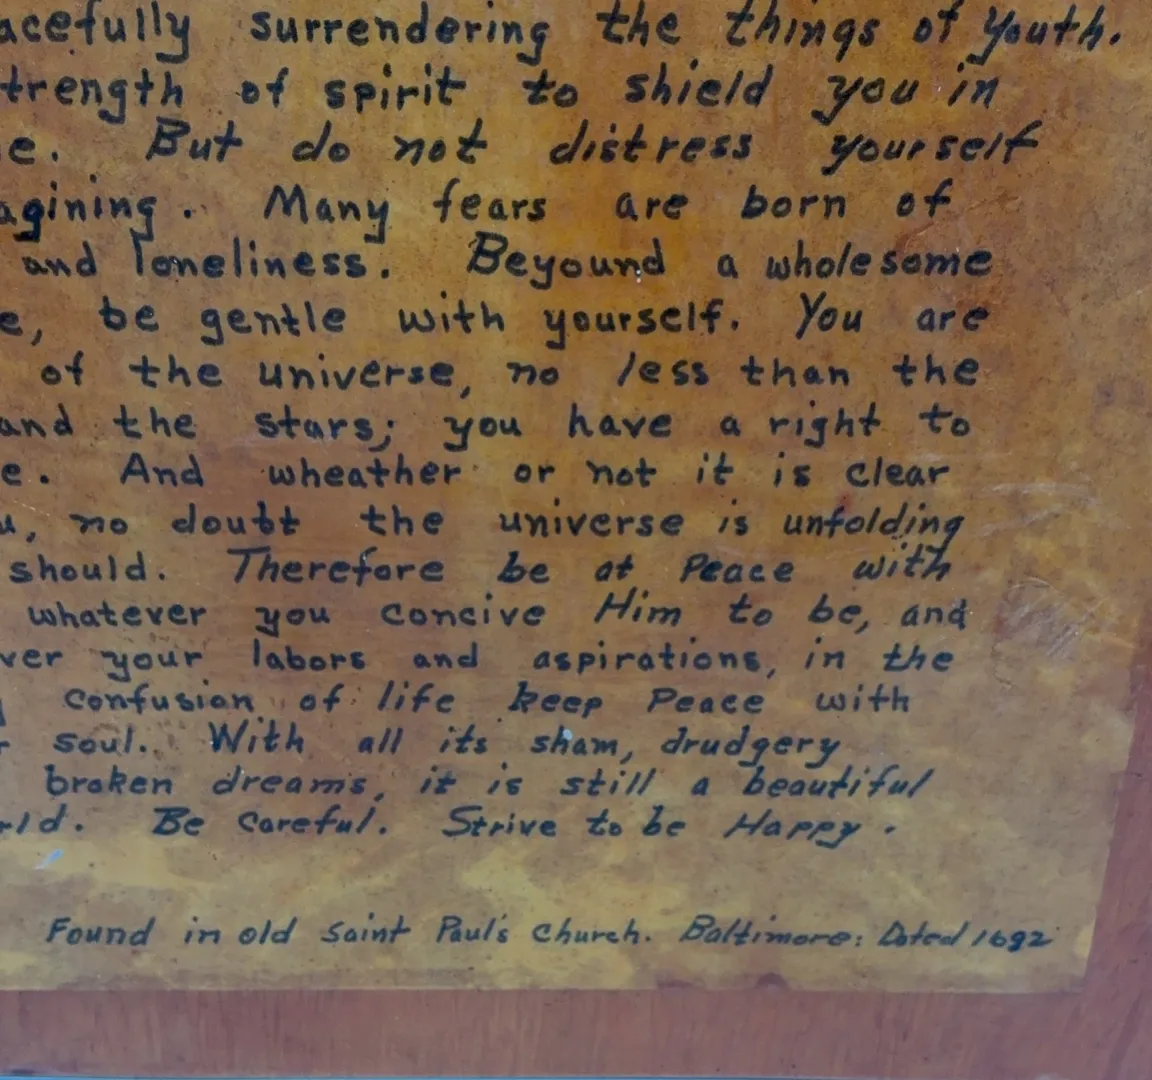 acefully surrendering the things of Youth.
trength of spirit to shield you in
e. But do not distress yourself
agining. Many fears are born of
and loneliness. Beyound a wholesome
e, be gentle with yourself. You are
of the universe, no less than the
and the stars; you have a right to
e. And wheather or not it is clear
u, no doubt the universe is unfolding
should. Therefore be at Peace with
whatever you concive Him to be, and
ver your labors and aspirations, in the
confusion of life keep Peace with
r soul. With all its sham, drudgery
broken dreams, it is still a beautiful
rld. Be Careful. Strive to be Happy.
Found in old Saint Paul's Church. Baltimore: Dated 1692